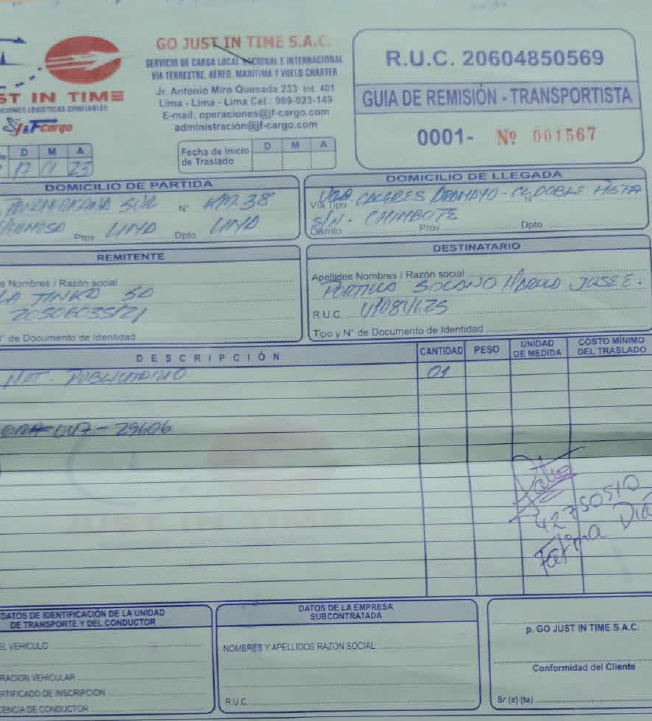 GO JUST IN TIME S.A.C.
SERVICIO DE CARGA LOCAL NACIONAL E INTERNACIONAL
VIA TERRESTRE, AEREO, MARITIMA Y VUELO CHARTER
Jr. Antonio Miro Quesada 233 Int. 401
Lima - Lima - Lima Cel.: 989-923-149
E-mail: operaciones@jf-cargo.com
administracion@jf-cargo.com
ST IN TIME
CIONES LOGISTICAS CONFIABLES
J&F Cargo
R.U.C. 20604850569
GUIA DE REMISIÓN - TRANSPORTISTA
0001- Nº 001567
D M A
Fecha de Inicio de Traslado D M A
DOMICILIO DE PARTIDA
SUR Nº KM 38
Prov LIMA Dpto LIMA
DOMICILIO DE LLEGADA
Via Tipo CACERES
S/N - CHIMBOTE
Distrito Prov Dpto
REMITENTE
s Nombres / Razón social
LA TINKA SA
Nº de Documento de Identidad
DESTINATARIO
Apellidos Nombres / Razón social
PORTILLA JOSE E.
R.U.C.
Tipo y Nº de Documento de Identidad
DESCRIPCIÓN CANTIDAD PESO UNIDAD DE MEDIDA COSTO MÍNIMO DEL TRASLADO
MAT. PUBLICITARIO 01
29606
42750510
Fatima
DATOS DE IDENTIFICACIÓN DE LA UNIDAD
DE TRANSPORTE Y DEL CONDUCTOR
EL VEHICULO
RACION VEHICULAR
RTIFICADO DE INSCRIPCION
CENCIA DE CONDUCTOR
DATOS DE LA EMPRESA
SUBCONTRATADA
NOMBRES Y APELLIDOS RAZON SOCIAL
R.U.C.
p. GO JUST IN TIME S.A.C.
Conformidad del Cliente
Sr (a) (ta)